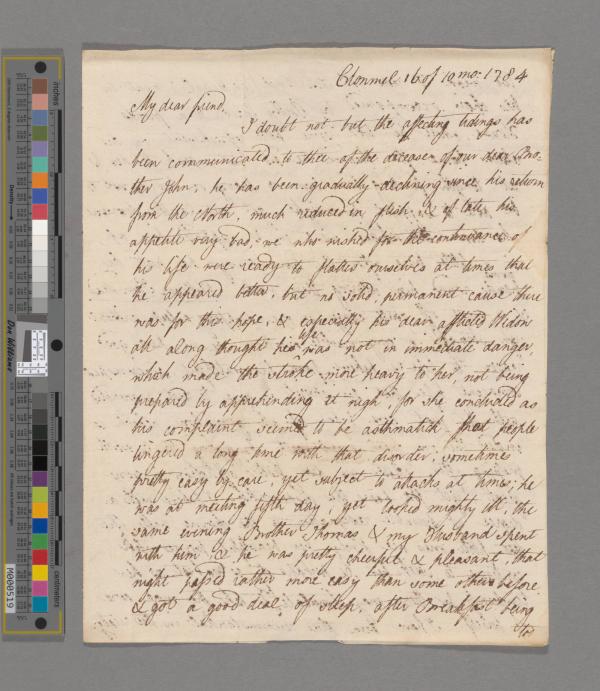 Clonmel 16 of 10 mo: 1784
My dear friend
I doubt not but the affecting tidings has
been communicated to thee of the decease of our dear Bro-
ther John, he has been gradually declining since his return
from the North, much reduced in flesh, & of late his
appetite very bad, we who wished for the continuance of
his life were ready to flatter ourselves at times that
he appeared better, but no solid, permanent cause there
was for this hope, & especially his dear afflicted Widow
all along thought his life was not in immediate danger
which made the stroke more heavy to her, not being
prepared by apprehending it nigh, for she concluded as
his complaint seemed to be asthmatick that people
lingered a long time with that disorder, sometimes
pretty easy by care, yet subject to attacks at times; he
was at meeting fifth day, yet looked mighty ill, the
same evening Brother Thomas & my Husband spent
with him & he was pretty cheerful & pleasant, that
night passed rather more easy than some others before
& got a good deal of sleep, after Breakfast being
to
inches
centimeters
Density
Don Williams
M000519